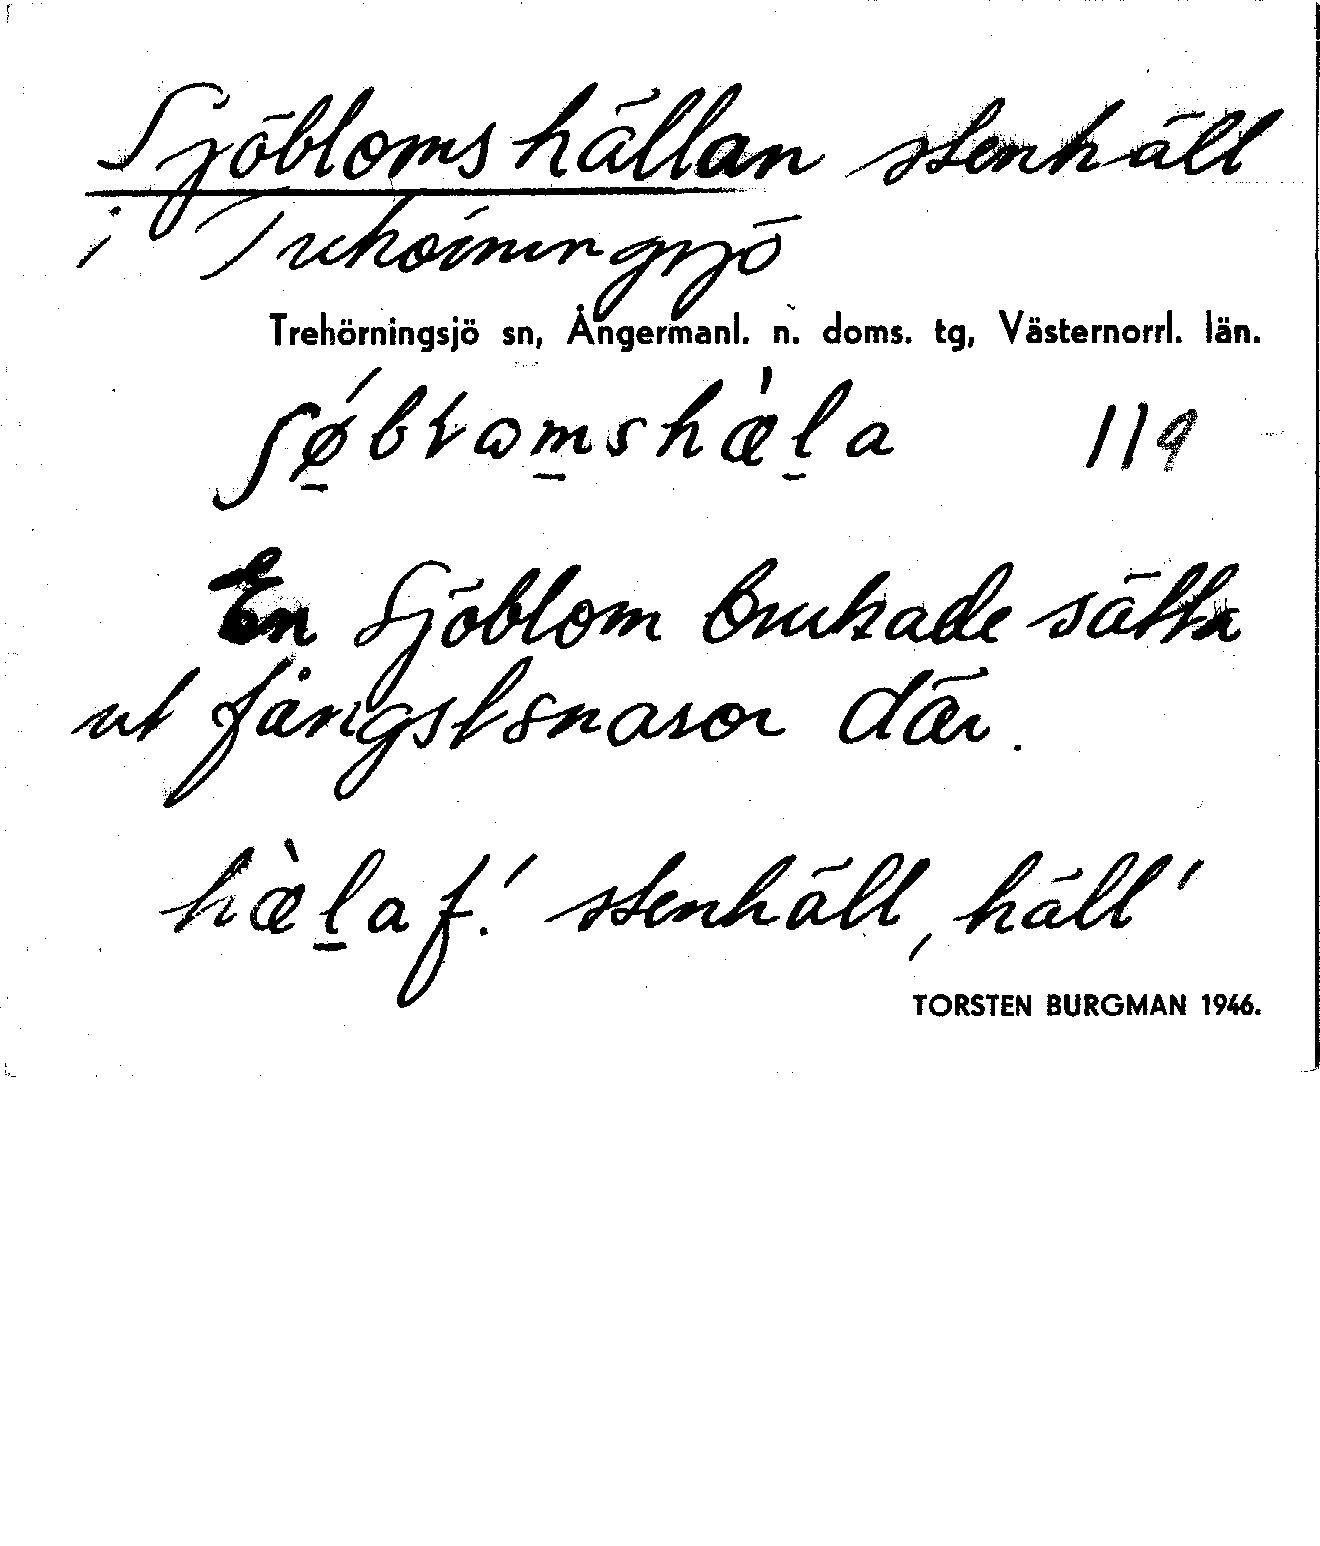 Sjöblomshällan stenhäll
i Trehörningsjö
Trehörningsjö sn, Ångermanl. n. doms. tg, Västernorrl. län.
ʃǿ̠bɽɷm̠shæ̀l̠a 119
En Sjöblom brukade sätta
ut fångstsnaror där.
hæ̀l̠a f. ' stenhäll, häll '
TORSTEN BURGMAN 1946.